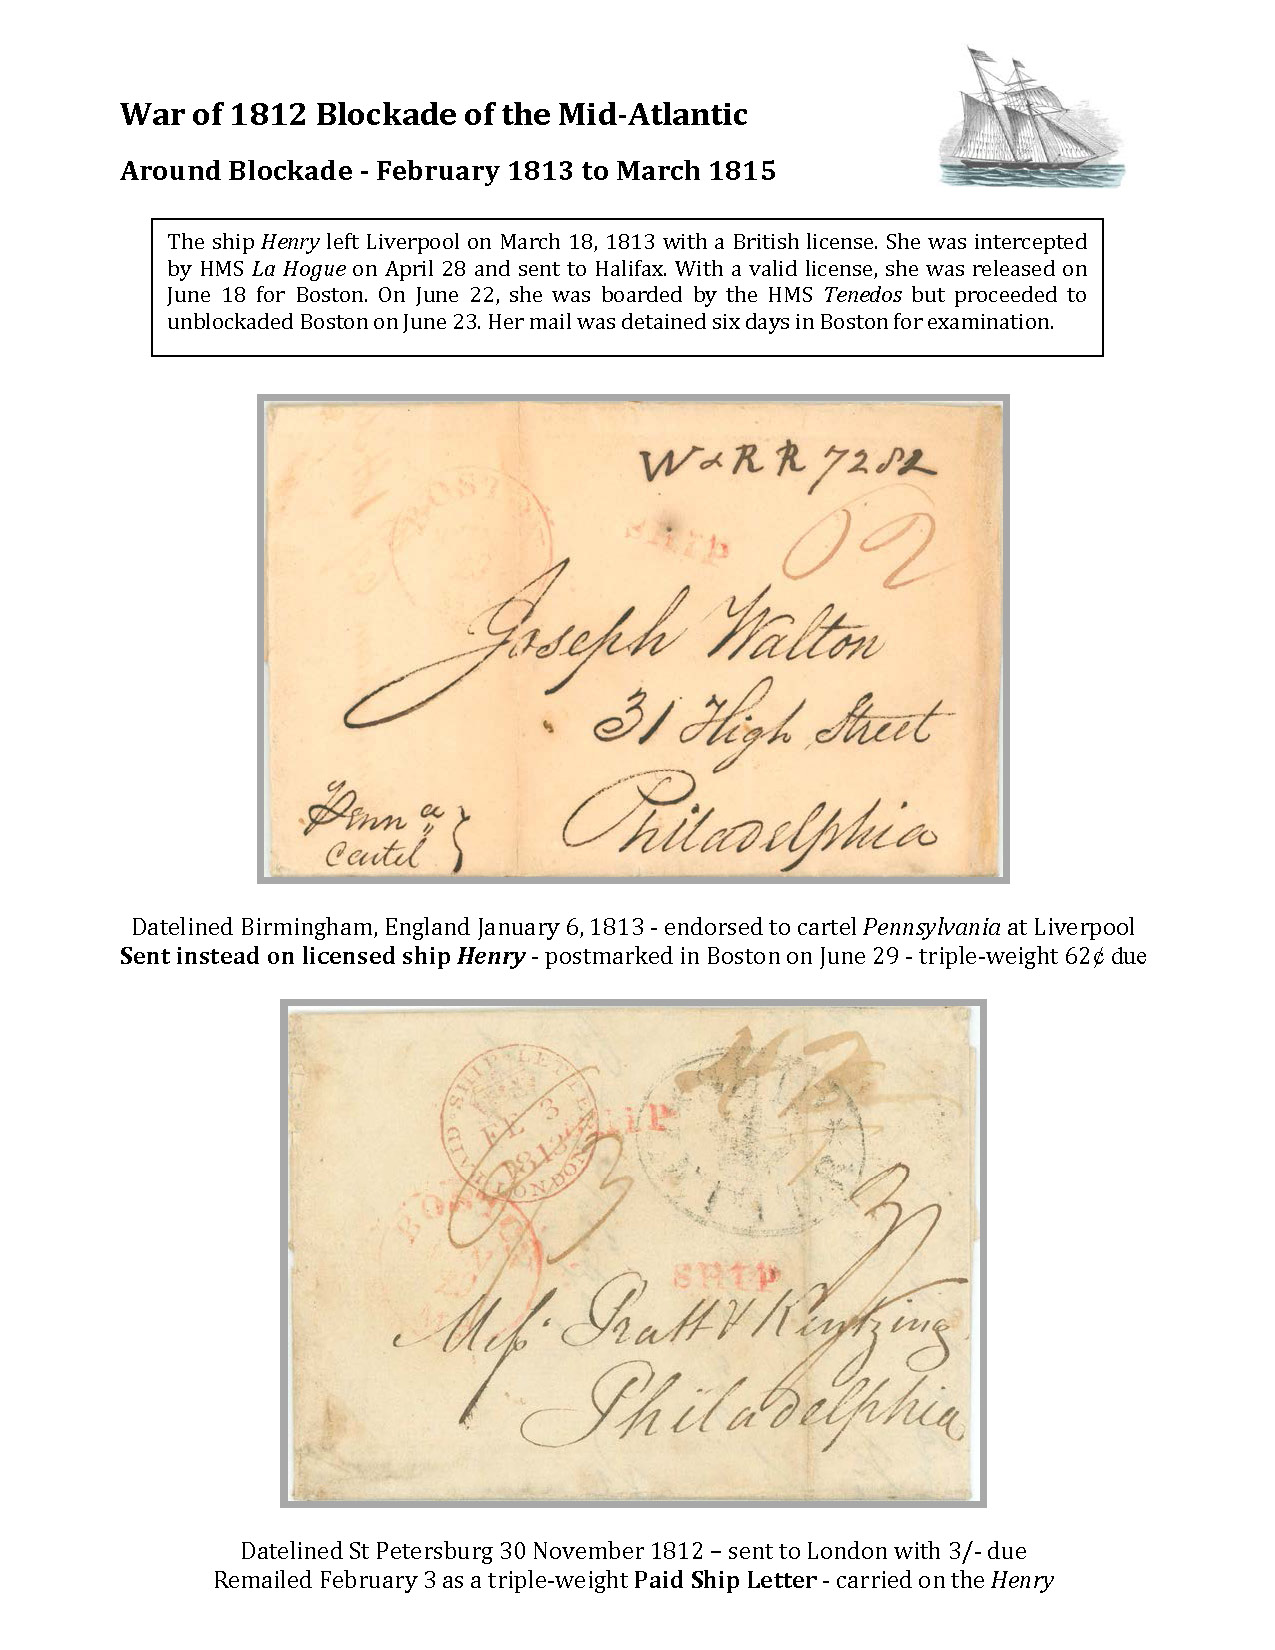 War of 1812 Blockade of the Mid-Atlantic
Around Blockade - February 1813 to March 1815
The ship Henry left Liverpool on March 18, 1813 with a British license. She was intercepted
by HMS La Hogue on April 28 and sent to Halifax. With a valid license, she was released on
June 18 for Boston. On June 22, she was boarded by the HMS Tenedos but proceeded to
unblockaded Boston on June 23. Her mail was detained six days in Boston for examination.
W & R R 7282
SHIP
62
Joseph Walton
31 High Street
Philadelphia
Penn a
Cartel
Datelined Birmingham, England January 6, 1813 - endorsed to cartel Pennsylvania at Liverpool
Sent instead on licensed ship Henry - postmarked in Boston on June 29 - triple-weight 62¢ due
PAID SHIP LETTER LONDON
FE 3
1813
SHIP
BOSTON
SHIP
Messrs Pratt & Kintzing
Philadelphia
Datelined St Petersburg 30 November 1812 – sent to London with 3/- due
Remailed February 3 as a triple-weight Paid Ship Letter - carried on the Henry